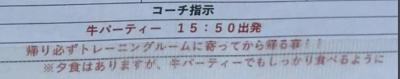 コーチ指示
牛パーティー 15:50出発
帰り必ずトレーニングルームに寄ってから帰る事!!
※夕食はありますが、牛パーティーでもしっかり食べるように